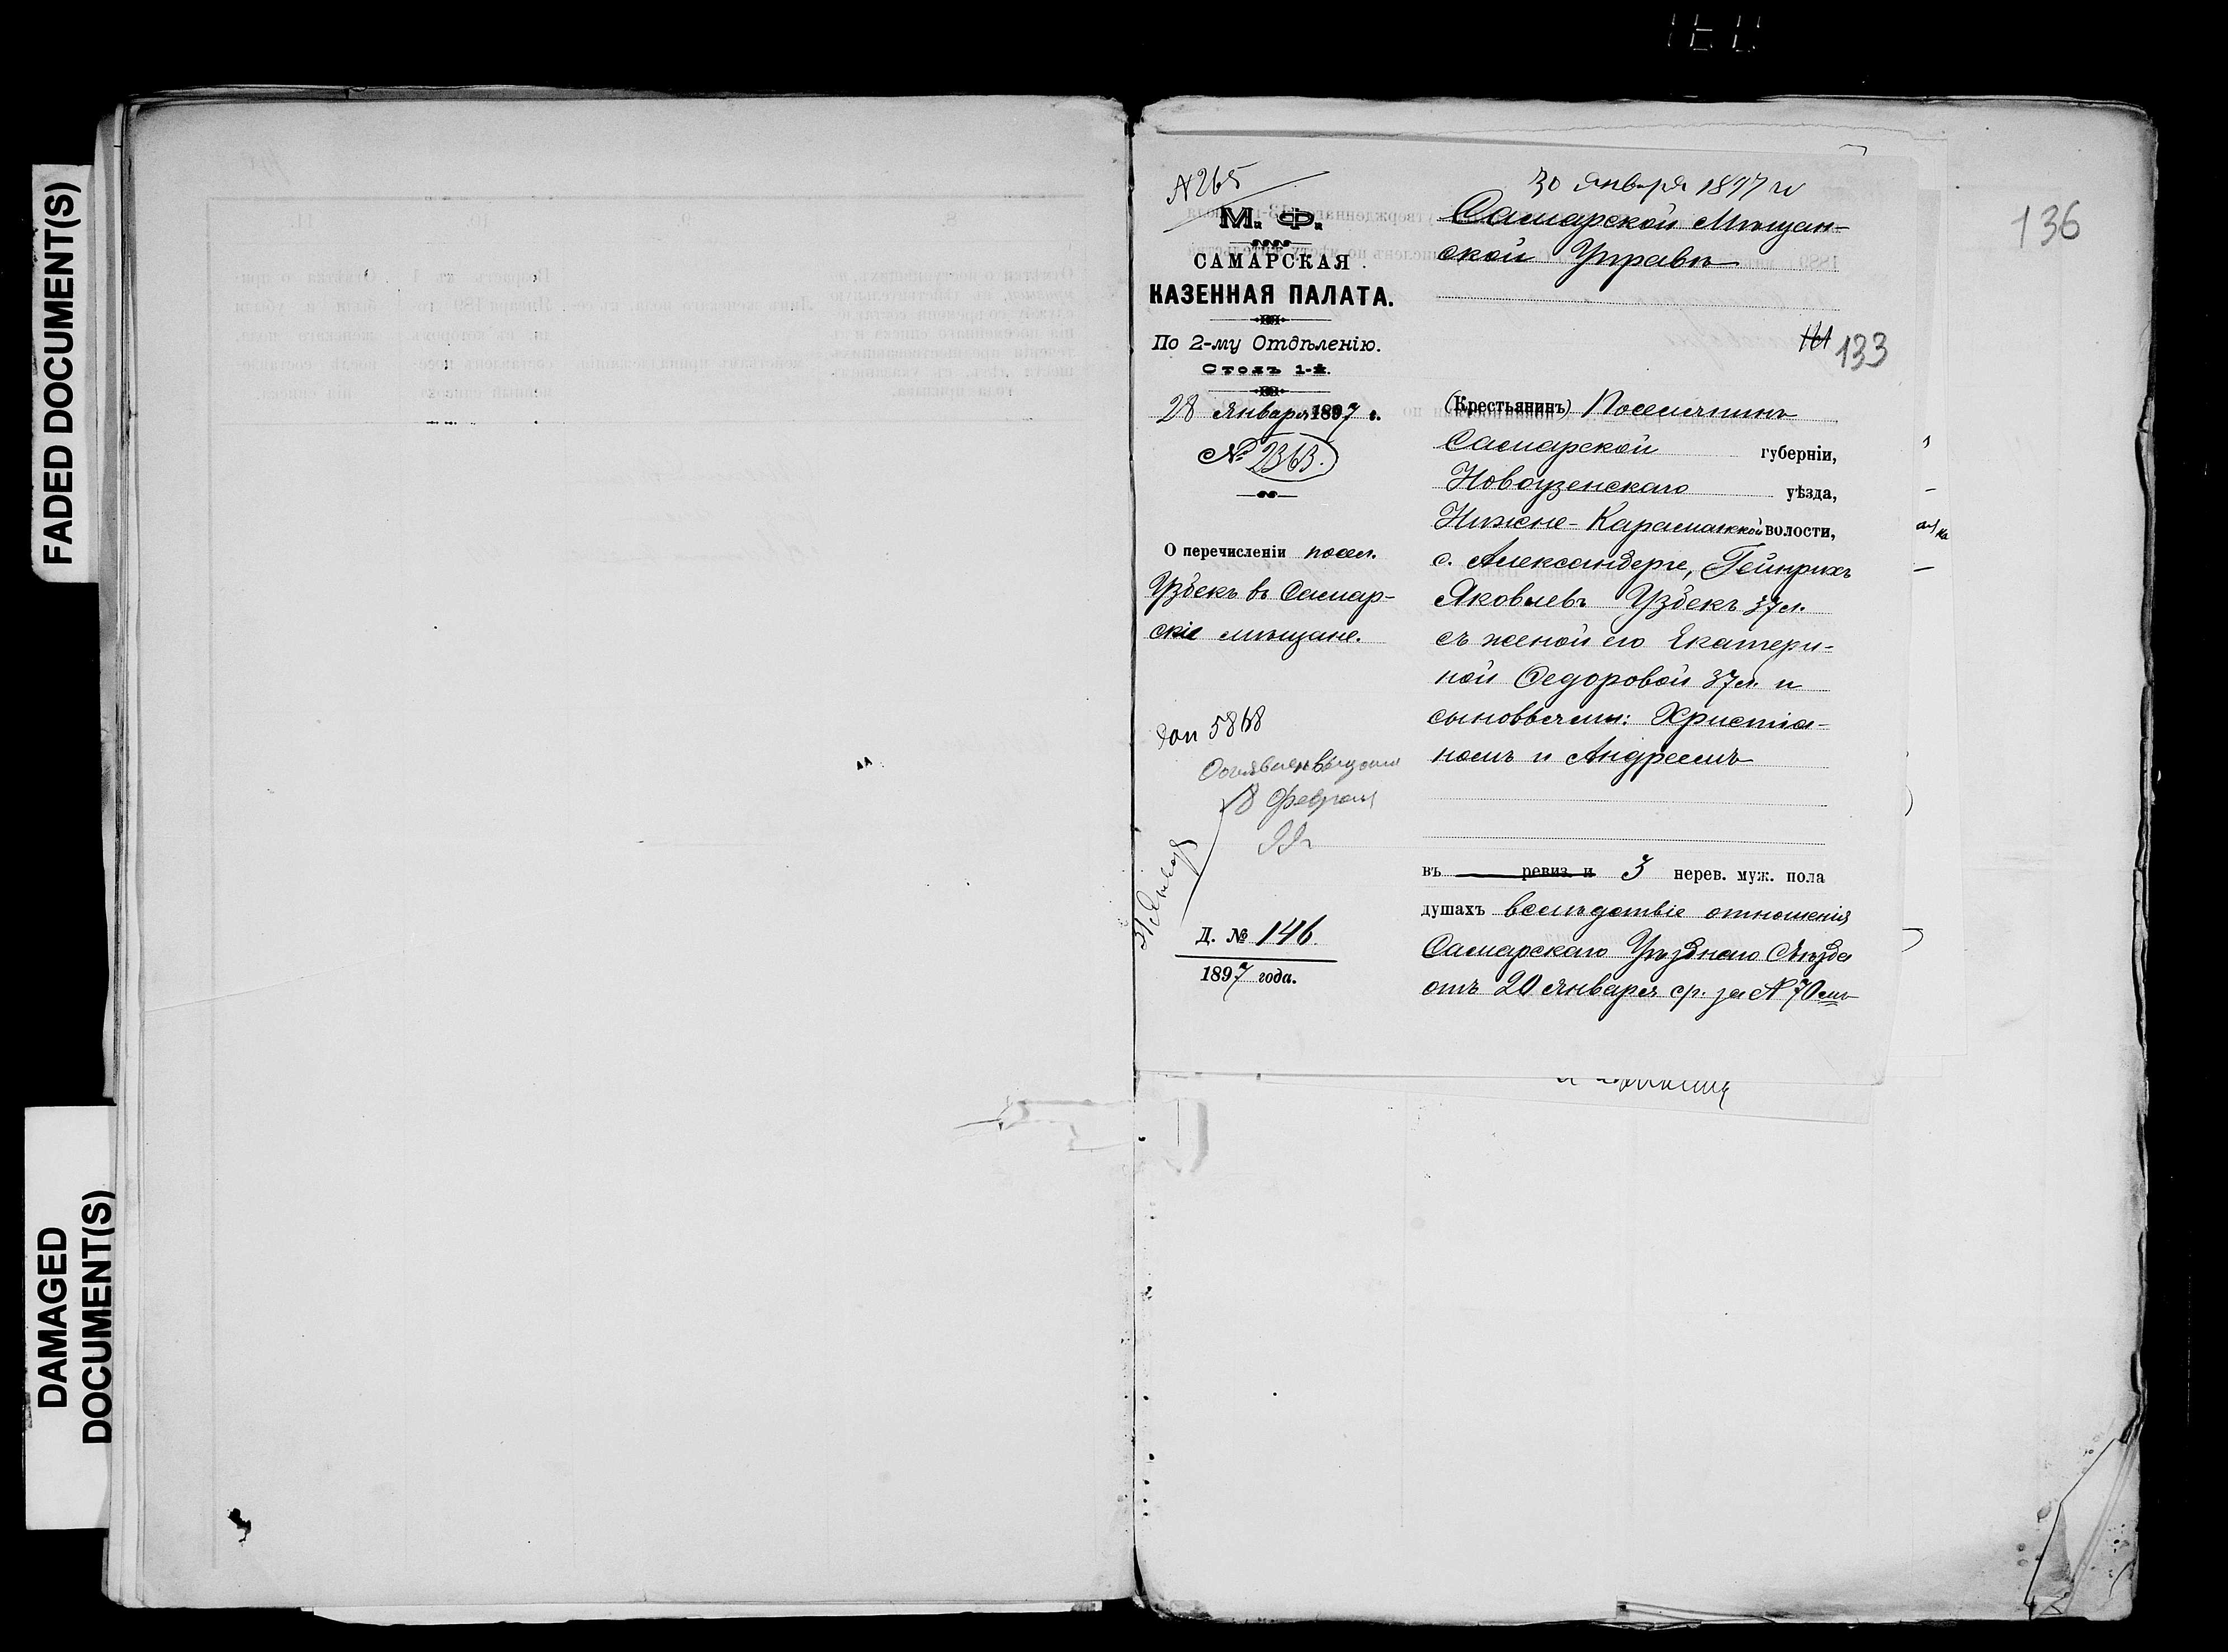 FADED DOCUMENT(S)
DAMAGED
DOCUMENT(S)
136
N 265
М. Ф.
САМАРСКАЯ
КАЗЕННАЯ ПАЛАТА.
По 2-му Отдѣленію.
Столъ 1-й.
28 Января 1897 г.
№ 2363.
О перечисленіи посел.
Узбекъ въ Самар-
скіе мѣщане.
5868
18 Февраля
Д. № 146
1897 года.
30 Января 1897 г
Самарской Мѣщан-
ской Управѣ
161 133
(Крестьянинъ) Поселянинъ
Самарской губерніи,
Новоузенскаго уѣзда,
Нижне-Караманской волости,
с. Александерге, Гейнрихъ
Яковлевъ Узбекъ 37 л.
съ женой его Екатери-
ной Федоровой 37 л. и
сыновьями: Христіа-
номъ и Андреемъ
въ ревиз. и 3 нерев. муж. пола
душахъ вслѣдствіе отношенія
Самарскаго Уѣзднаго Съѣзда
отъ 20 Января ср. за N 70 мъ